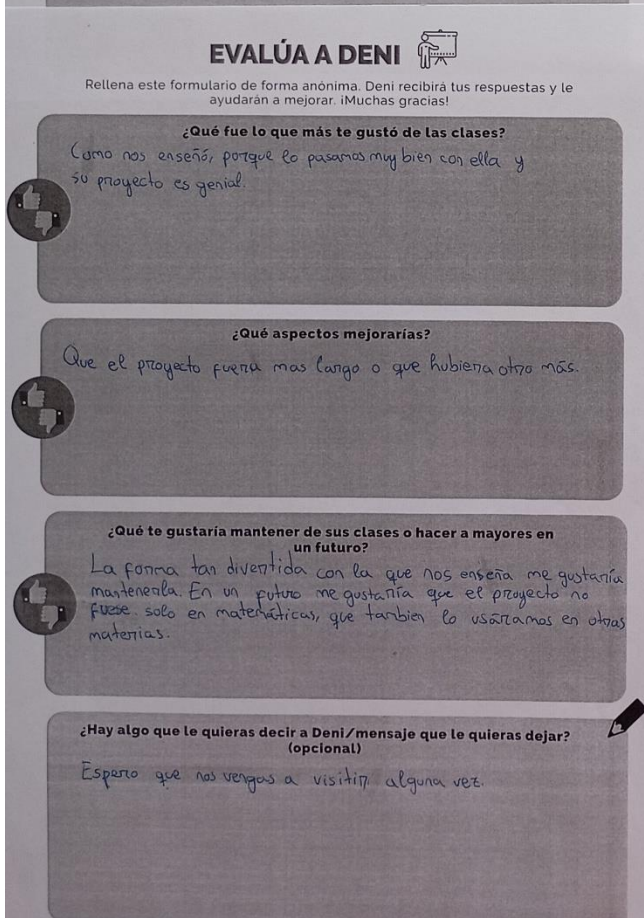 EVALÚA A DENI
Rellena este formulario de forma anónima. Deni recibirá tus respuestas y le
ayudarán a mejorar. ¡Muchas gracias!
¿Qué fue lo que más te gustó de las clases?
Como nos enseñó, porque lo pasamos muy bien con ella y
su proyecto es genial.
¿Qué aspectos mejorarías?
Que el proyecto fuera mas largo o que hubiera otro más.
¿Qué te gustaría mantener de sus clases o hacer a mayores en
un futuro?
La forma tan divertida con la que nos enseña me gustaría
mantenerla. En un futuro me gustaría que el proyecto no
fuese solo en matemáticas, que tanbien lo usáramos en otras
materias.
¿Hay algo que le quieras decir a Deni/mensaje que le quieras dejar?
(opcional)
Espero que nos vengas a visitir alguna vez.